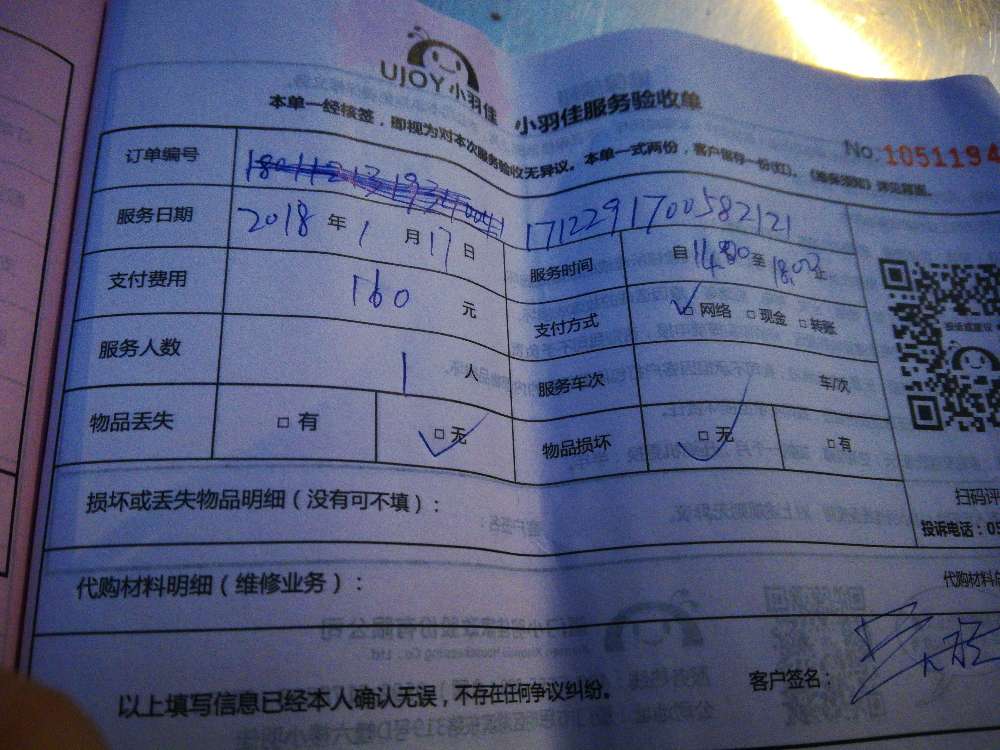 UJOY 小羽佳
小羽佳服务验收单
本单一经核签，即视为对本次服务验收无异议。本单一式两份，客户留存一份(红)。
No.1051194
订单编号 1712291700582121
服务日期 2018 年 1 月 17 日 服务时间 自 14:00 至 18:00 止
支付费用 160 元 支付方式 □ 网络 □ 现金 □ 转账
服务人数 1 人 服务车次 车/次
物品丢失 □ 有 □ 无 物品损坏 □ 无 □ 有
损坏或丢失物品明细（没有可不填）：
扫码评
投诉电话：05
代购材料明细（维修业务）：
代购材料
以上填写信息已经本人确认无误，不存在任何争议纠纷。
客户签名：